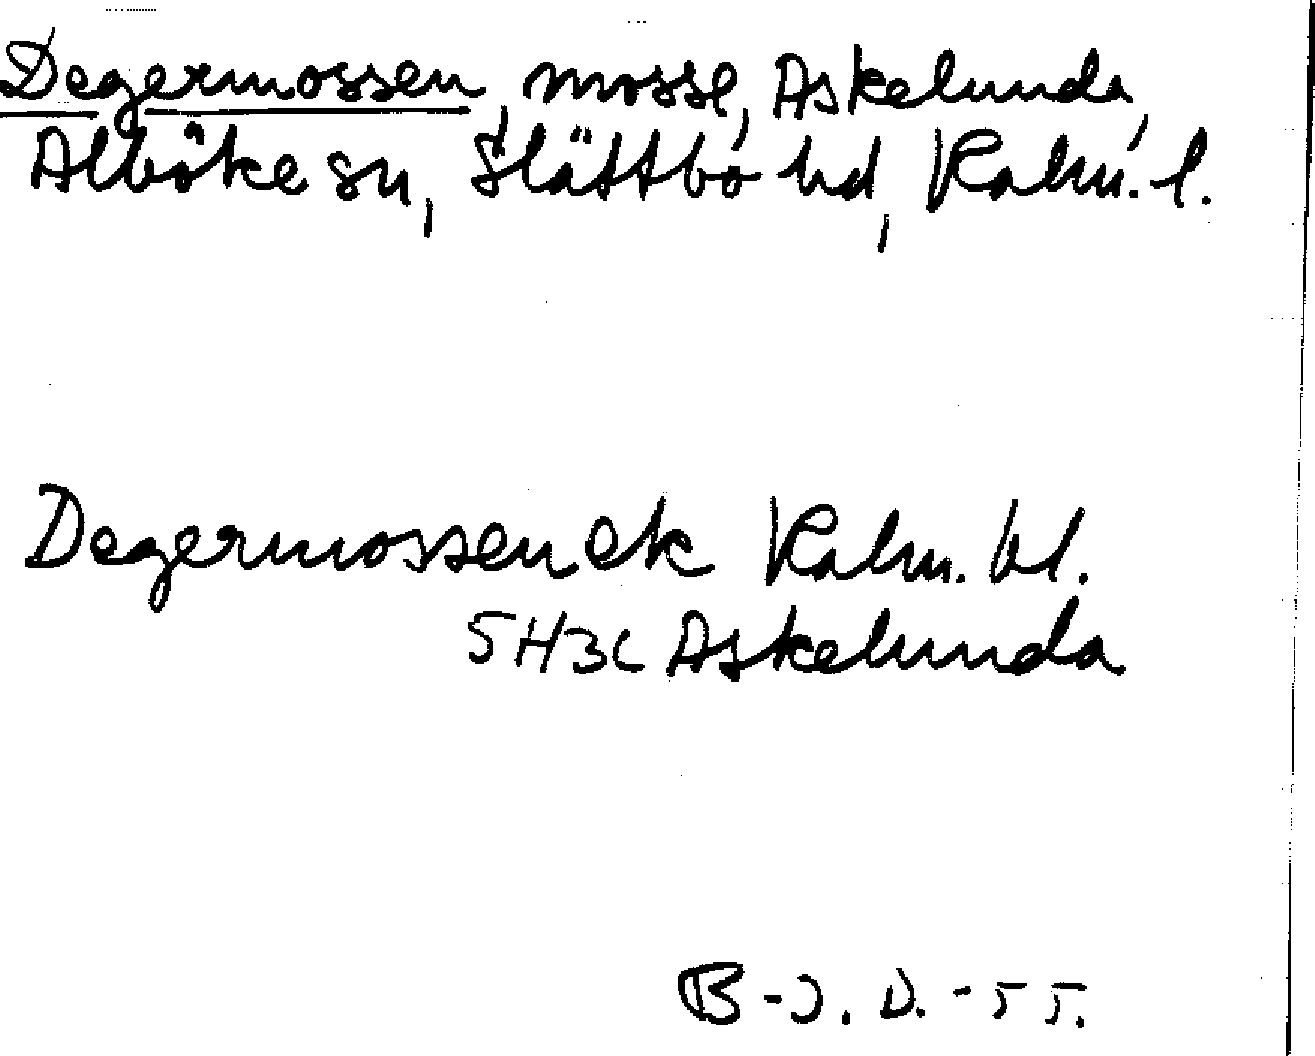 Degermossen, mosse, Askelunda,
Alböke sn, Slättbo hd, Kalm. l.
Degermossen ek Kalm. bl.
5H3c Askelunda
B-J. D. -55.